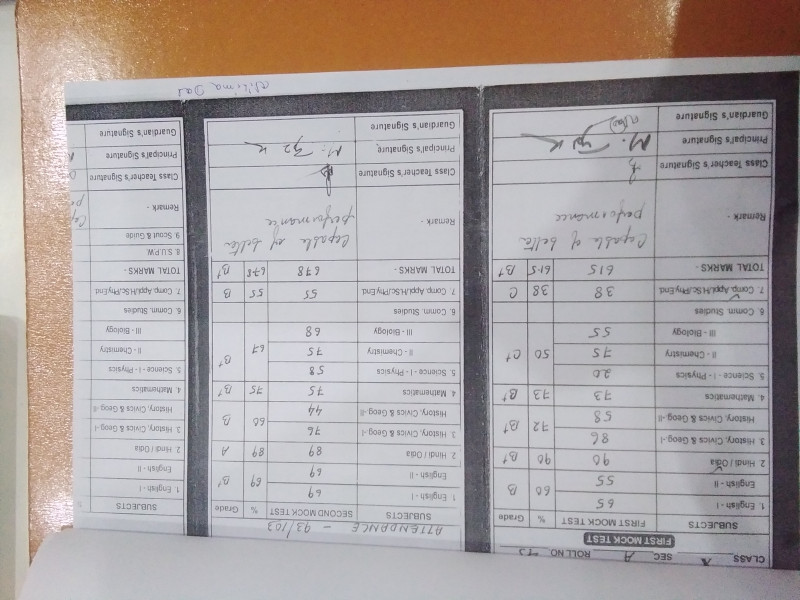 CLASS X SEC. A ROLL NO.
FIRST MOCK TEST
SUBJECTS FIRST MOCK TEST % Grade
1. English - I 65 60 B
English - II 55
2. Hindi / Odia 90 90 A+
3. History, Civics & Geog-I 86 72 B+
History, Civics & Geog-II 58
4. Mathematics 73 73 B+
5. Science - I - Physics 20 50 C+
II - Chemistry 75
III - Biology 55
6. Comm. Studies
7. Comp. Appl./H.Sc/Phy.End. 38 38 C
TOTAL MARKS - 615 61.5 B+
Remark - Capable of better performance
Class Teacher's Signature
Principal's Signature
Guardian's Signature
ATTENDANCE - 93/103
SUBJECTS SECOND MOCK TEST % Grade
1. English - I 69 69 B+
English - II 69
2. Hindi / Odia 89 89 A
3. History, Civics & Geog-I 76 60 B
History, Civics & Geog-II 44
4. Mathematics 75 75 B+
5. Science - I - Physics 58 67 B+
II - Chemistry 75
III - Biology 68
6. Comm. Studies
7. Comp. Appl./H.Sc/Phy.End. 55 55 B
TOTAL MARKS - 678 67.8 B+
Remark - Capable of better performance
Class Teacher's Signature
Principal's Signature
Guardian's Signature
SUBJECTS
1. English - I
English - II
2. Hindi / Odia
3. History, Civics & Geog-I
History, Civics & Geog-II
4. Mathematics
5. Science - I - Physics
II - Chemistry
III - Biology
6. Comm. Studies
7. Comp. Appl./H.Sc/Phy.End.
TOTAL MARKS -
8. S.U.P.W.
9. Scout & Guide
Remark -
Class Teacher's Signature
Principal's Signature
Guardian's Signature